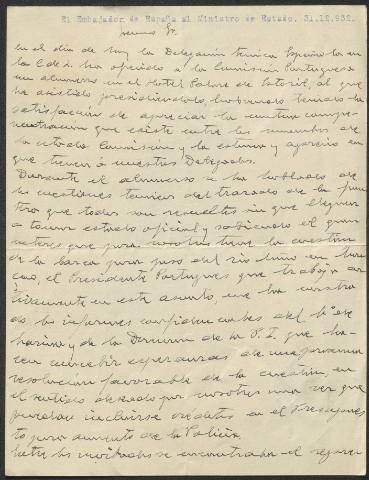 El Embajador de España al Ministro de Estado. 31.12.932.
Sr.
en el día de hoy la Delegación técnica Española en
la C de L ha ofrecido a la Comisión Portuguesa
un almuerzo en el Hotel Palace de Estoril, al que
he asistido presidiéndolo, habiendo tenido la
satisfacción de apreciar la
que existe entre los miembros de
la citada Comisión y la estima y aprecio en
que tienen a nuestros Delegados.
Durante el almuerzo se ha hablado de
las cuestiones técnicas del trazado de la fron
tera que todas son resueltas sin que lleguen
a tomar estado oficial y sabiendo el gran
interés que para nosotros tiene la cuestión
de la barca para paso del río Miño en
el Presidente Portugués que trabaja ac
tivamente en este asunto, me ha mostra
do, los informes confidenciales del Mº de
Marina y de la Dirección de la P. I. que ha
cen concebir esperanzas de una próxima
resolución favorable de la cuestión, en
el sentido deseado por nosotros una vez que
puedan incluirse créditos en el Presupues
to para aumento de la Policía.
Entre los invitados se encontraba el